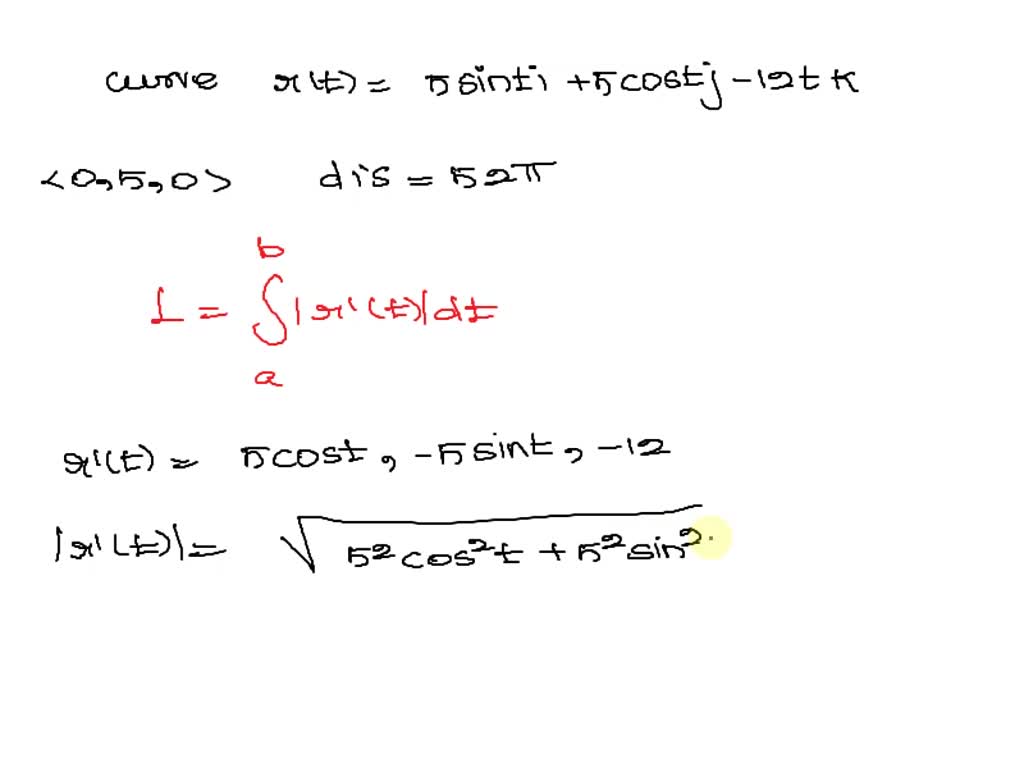 curve r(t) = 5sinti + 5costj - 12tk
<0,5,0> dis = 52π
b
L = ∫|r'(t)|dt
a
r'(t) = 5cost, -5sint, -12
|r'(t)| = √5²cos²t + 5²sin²